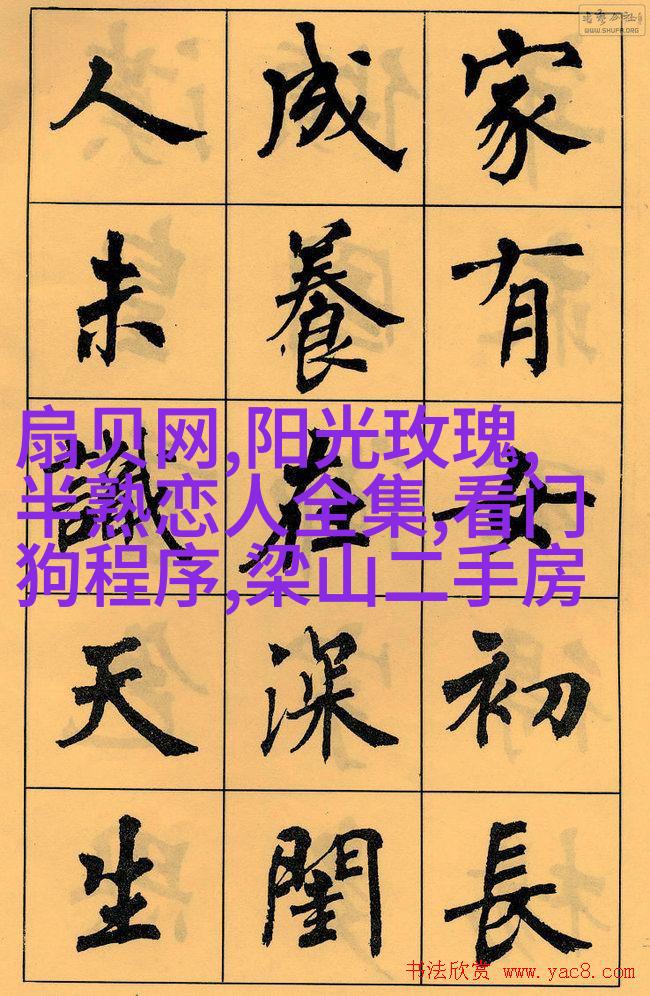 WWW.SHUFA.ORG
家有女初長
成養在深閨
人未識天生
扇贝网,阳光玫瑰,
半熟恋人全集,看门
狗程序,梁山二手房
书法欣赏 www.yac8.com